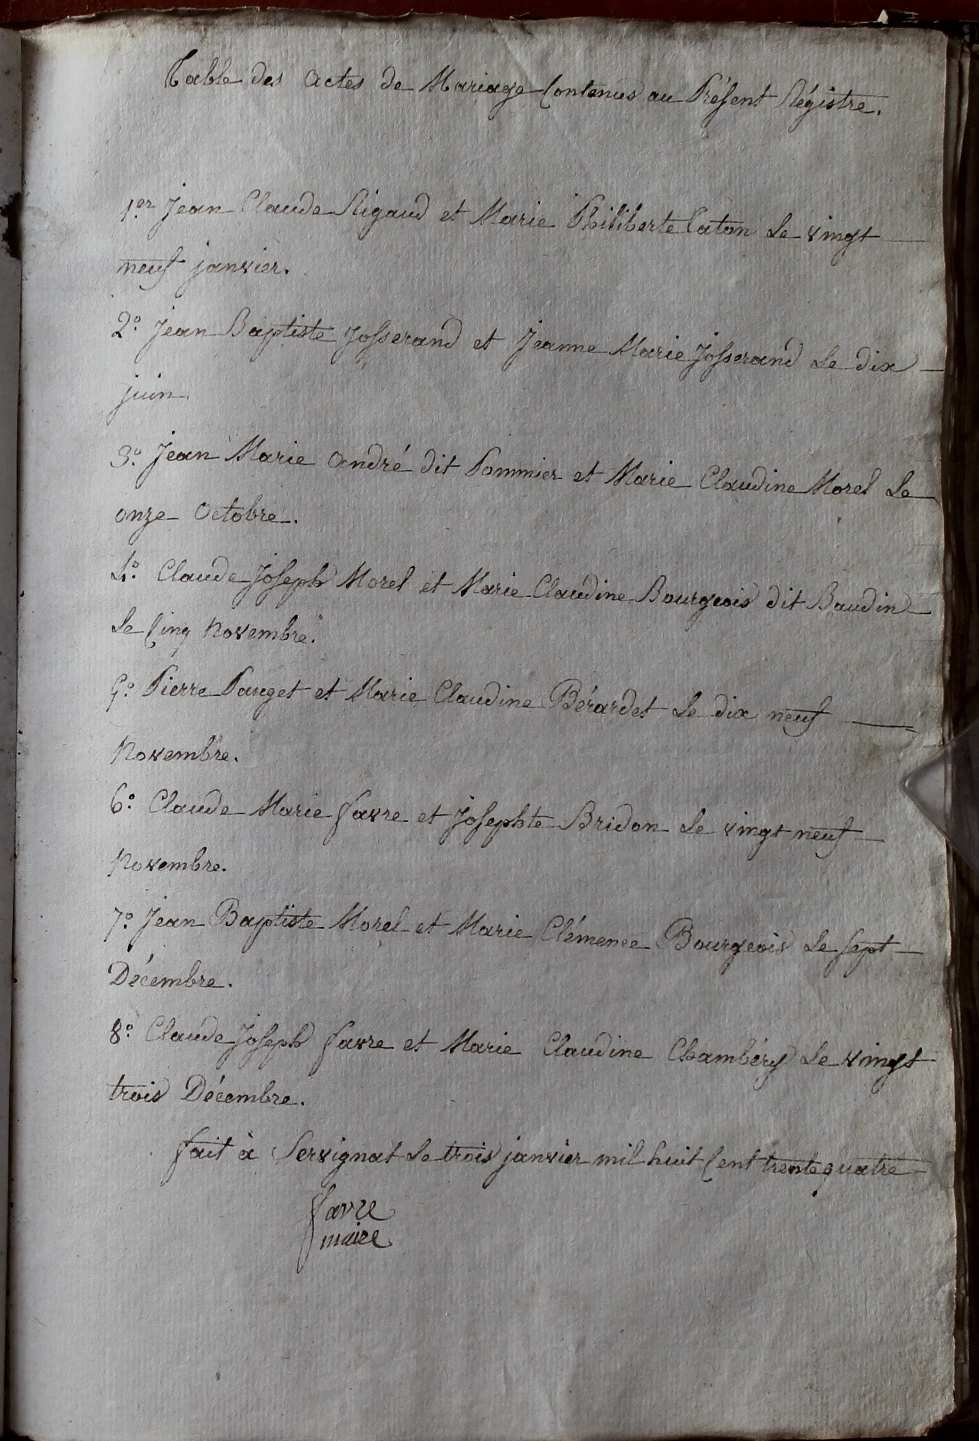 Table des actes de Mariage Contenus au Présent Régistre.
1er Jean Claude Rigaud et Marie Philiberte Caton le vingt
neuf janvier.
2° Jean Baptiste Josserand et Jeanne Marie Josserand le dix
juin.
3° Jean Marie André dit Pommier et Marie Claudine Morel le
onze Octobre.
4° Claude Joseph Morel et Marie Claudine Bourgeois dit Baudin
le Cinq Novembre.
5° Pierre Pauget et Marie Claudine Bérardet le dix neuf
Novembre.
6° Claude Marie favre et Josephte Bridon le vingt neuf
Novembre.
7° Jean Baptiste Morel et Marie Clémence Bourgeois le sept
Décembre.
8° Claude Joseph favre et Marie Claudine Chambéry le vingt
trois Décembre.
fait à Servignat le trois janvier mil huit Cent trente quatre
favre
maire